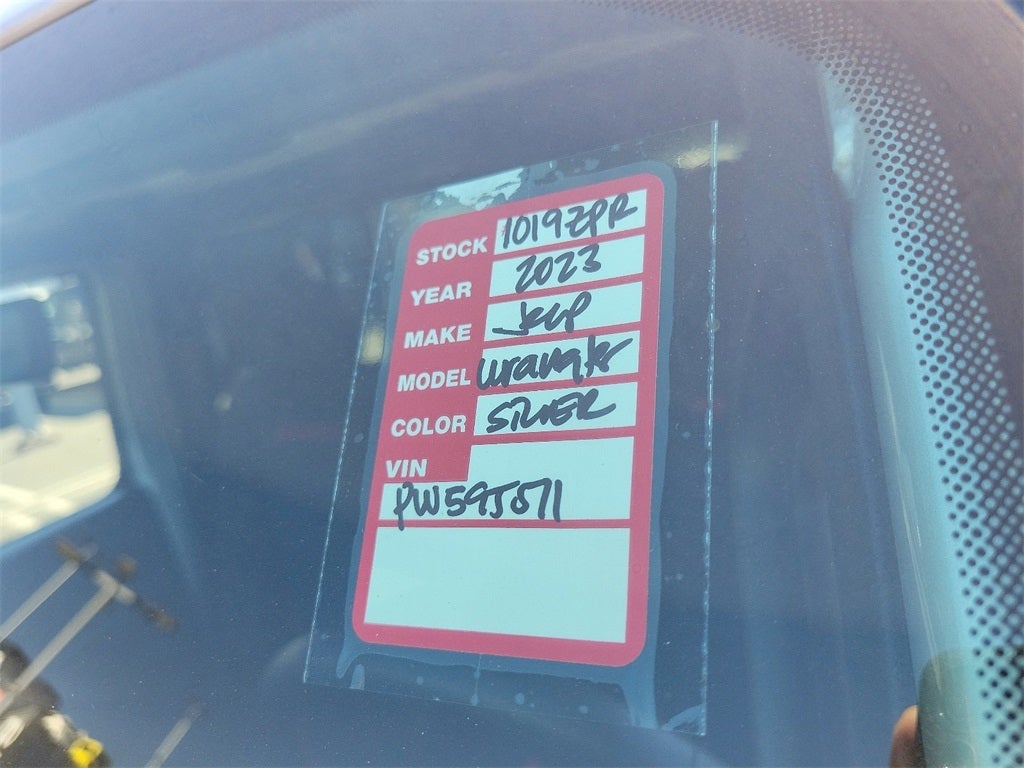 STOCK 1019ZPR
YEAR 2023
MAKE Jeep
MODEL Wrangler
COLOR SILVER
VIN
PW595071